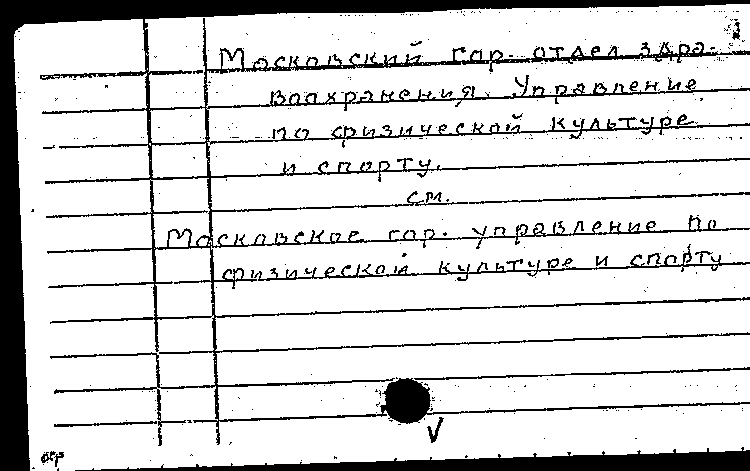 Московский гор. отдел здра-
воохранения. Управление
по физической культуре
и спорту.
см.
Московское гор. управление по
физической культуре и спорту